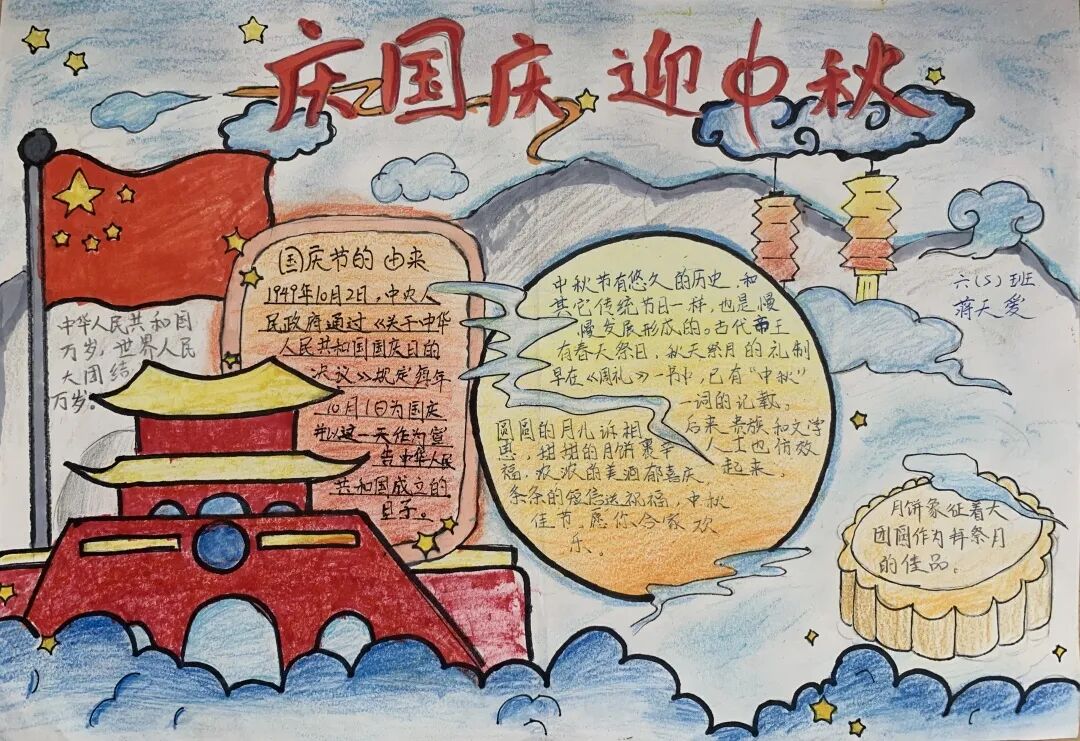 庆国庆 迎中秋
国庆节的由来
1949年10月2日，中央人
民政府通过《关于中华
人民共和国国庆日的
决议》规定每年
10月1日为国庆
并以这一天作为宣
告中华人民
共和国成立的
日子。
中华人民共和国
万岁，世界人民
大团结
万岁。
中秋节有悠久的历史，和
其它传统节日一样，也是慢
慢发展形成的。古代帝王
有春天祭日，秋天祭月的礼制
早在《周礼》一书中，已有“中秋”
一词的记载。
后来贵族和文学
人士也仿效
起来。
圆圆的月儿诉相
思，甜甜的月饼裹幸
福，浓浓的美酒郁喜庆，
条条的短信送祝福，中秋
佳节，愿你合家欢
乐。
六(5)班
蒋天爱
月饼象征着大
团圆作为拜祭月
的佳品。